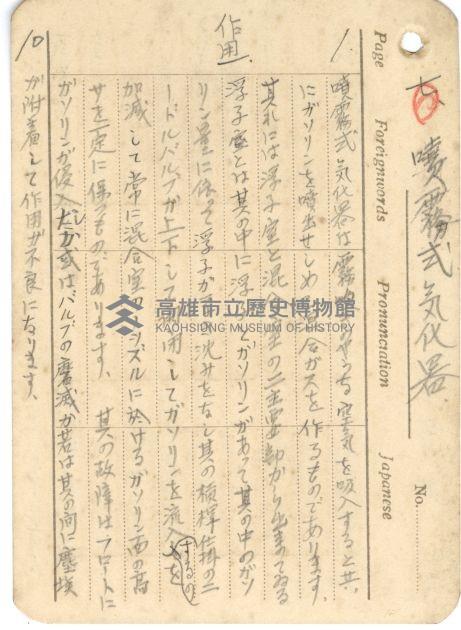 No.
六 噴霧式気化器
Page Foreignwords Pronunciation Japanese
作用
1. 噴霧式気化器は霧吹のやうな空気を吸入すると共
にガソリンを噴出せしめ混合ガスを作るものであります。
其れには浮子室と混合室の二主要部から出来てゐる
浮子室とは其の中に浮子とガソリンがあつて其の中のガソ
リン量に依つて浮子が浮沈みをなし其の槓桿仕掛のニ
ードルバルブが上下して作用してガソリンを流入するのを
加減して常に混合室のノズルに於けるガソリン面の高
サを一定に保つものであります。 其の故障はフロートに
ガソリンが侵入したか或はバルブの磨減か若は其の間に塵埃
が附着して作用が不良になります。
10
高雄市立歷史博物館
KAOHSIUNG MUSEUM OF HISTORY